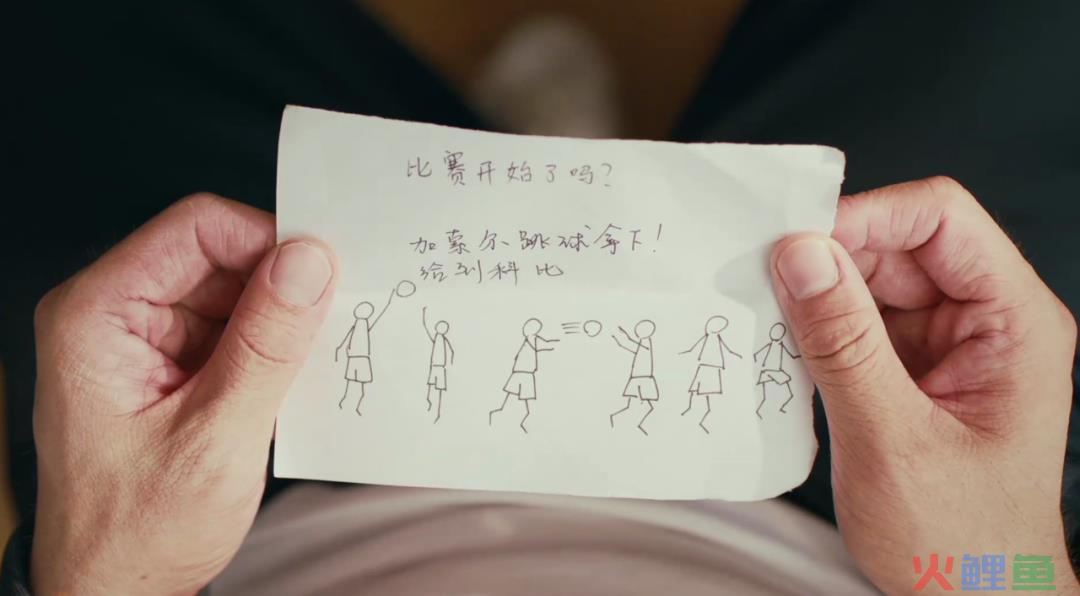 比赛开始了吗?
加索尔跳球拿下!
给到科比
火鲤鱼